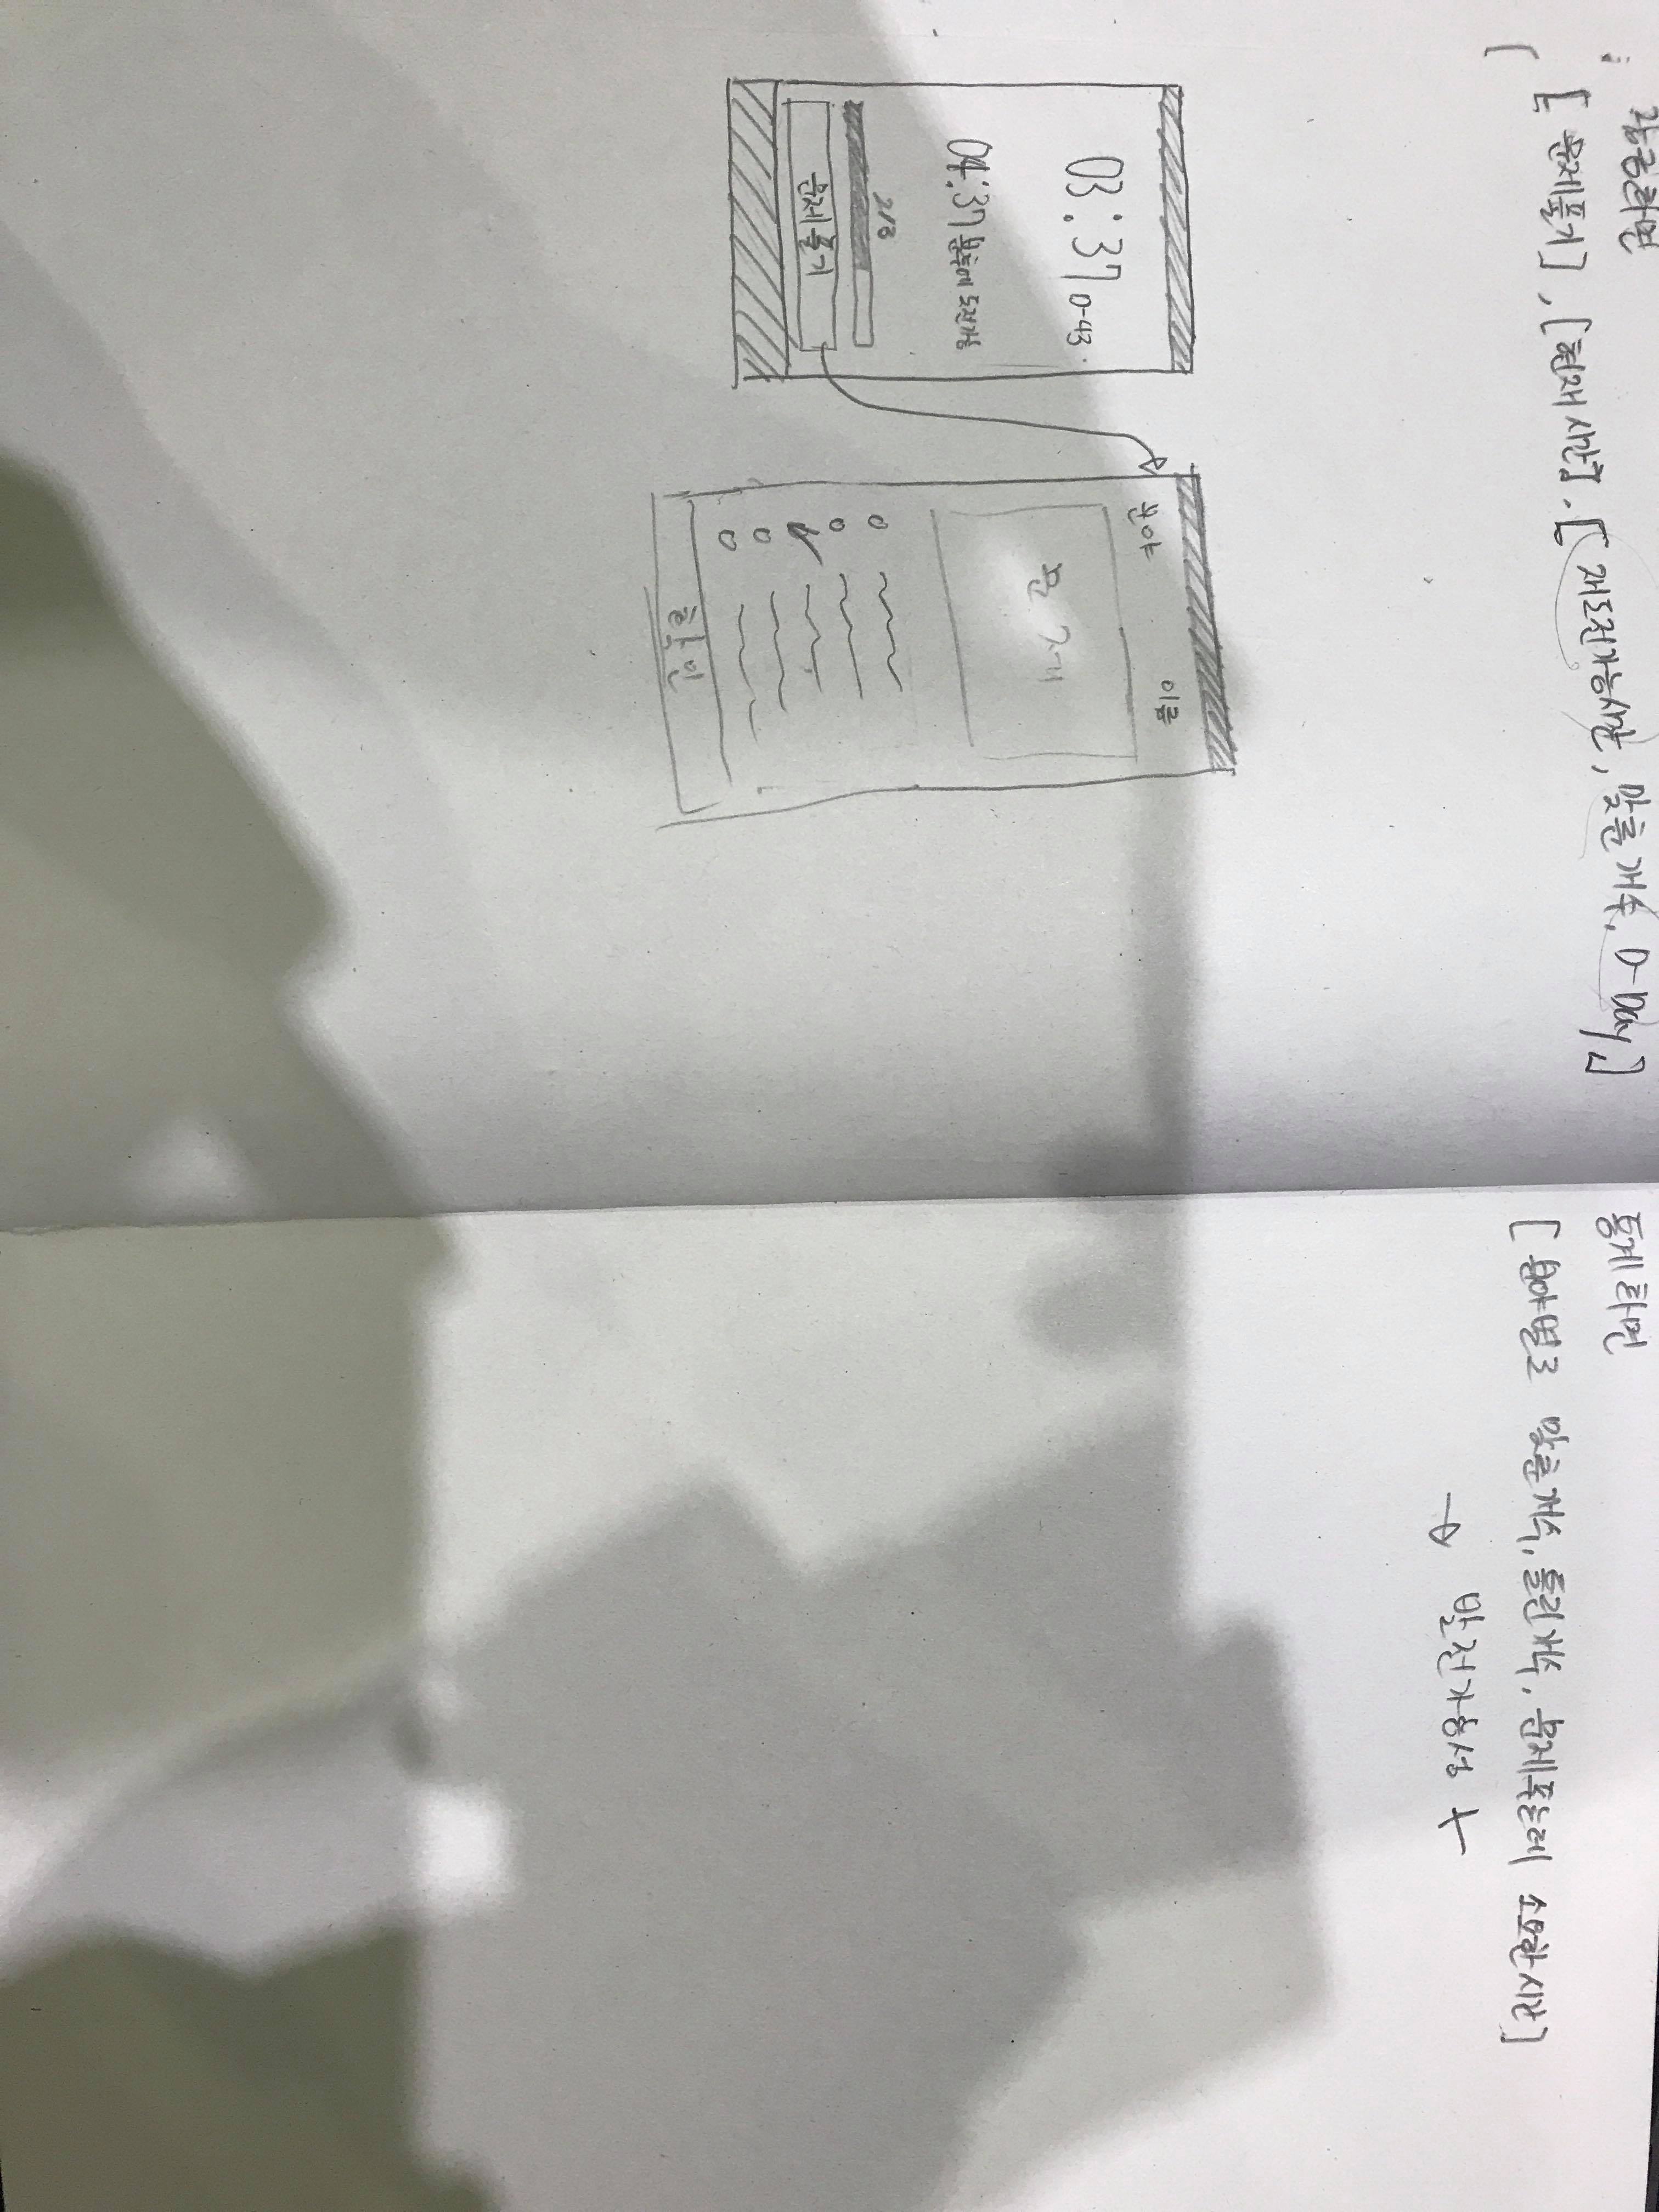 잠금화면
[문제풀기], [현재 시간], [재도전가능시간, 맞춘 개수, D-Day]
[
03:37 D-43
04:37 분후에 도전가능
2/3
문제풀기
분야 이름
문제
확인
통계화면
[분야별로 맞춘개수, 틀린개수, 문제푸는데 소요한시간]
→ 발전가능성 +